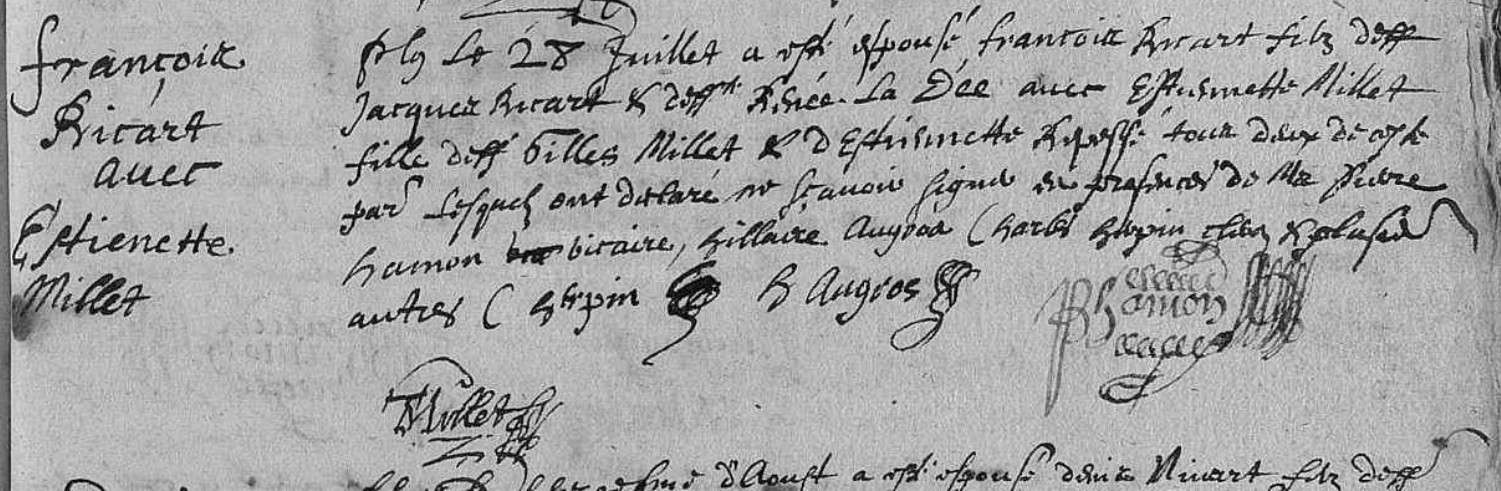 françois
Ricart
avec
Estienette
Millet
Plus Le 28 Juillet a esté espousé françois Ricart filz deff
Jacques Ricart & deff.te Renée La Dée avec Estiennette Millet
fille deff Gilles Millet & d Estiennette tous deux de ceste
par Lesquelz ont declaré ne sçavoir signer en presences de Me Pierre
hamon vicaire, hillaire Augros Charles herpin clerz & plusieurs
autres C herpin h Augros
P hamon
Millet
d'Aoust a esté espousé denis Ricart filz deff